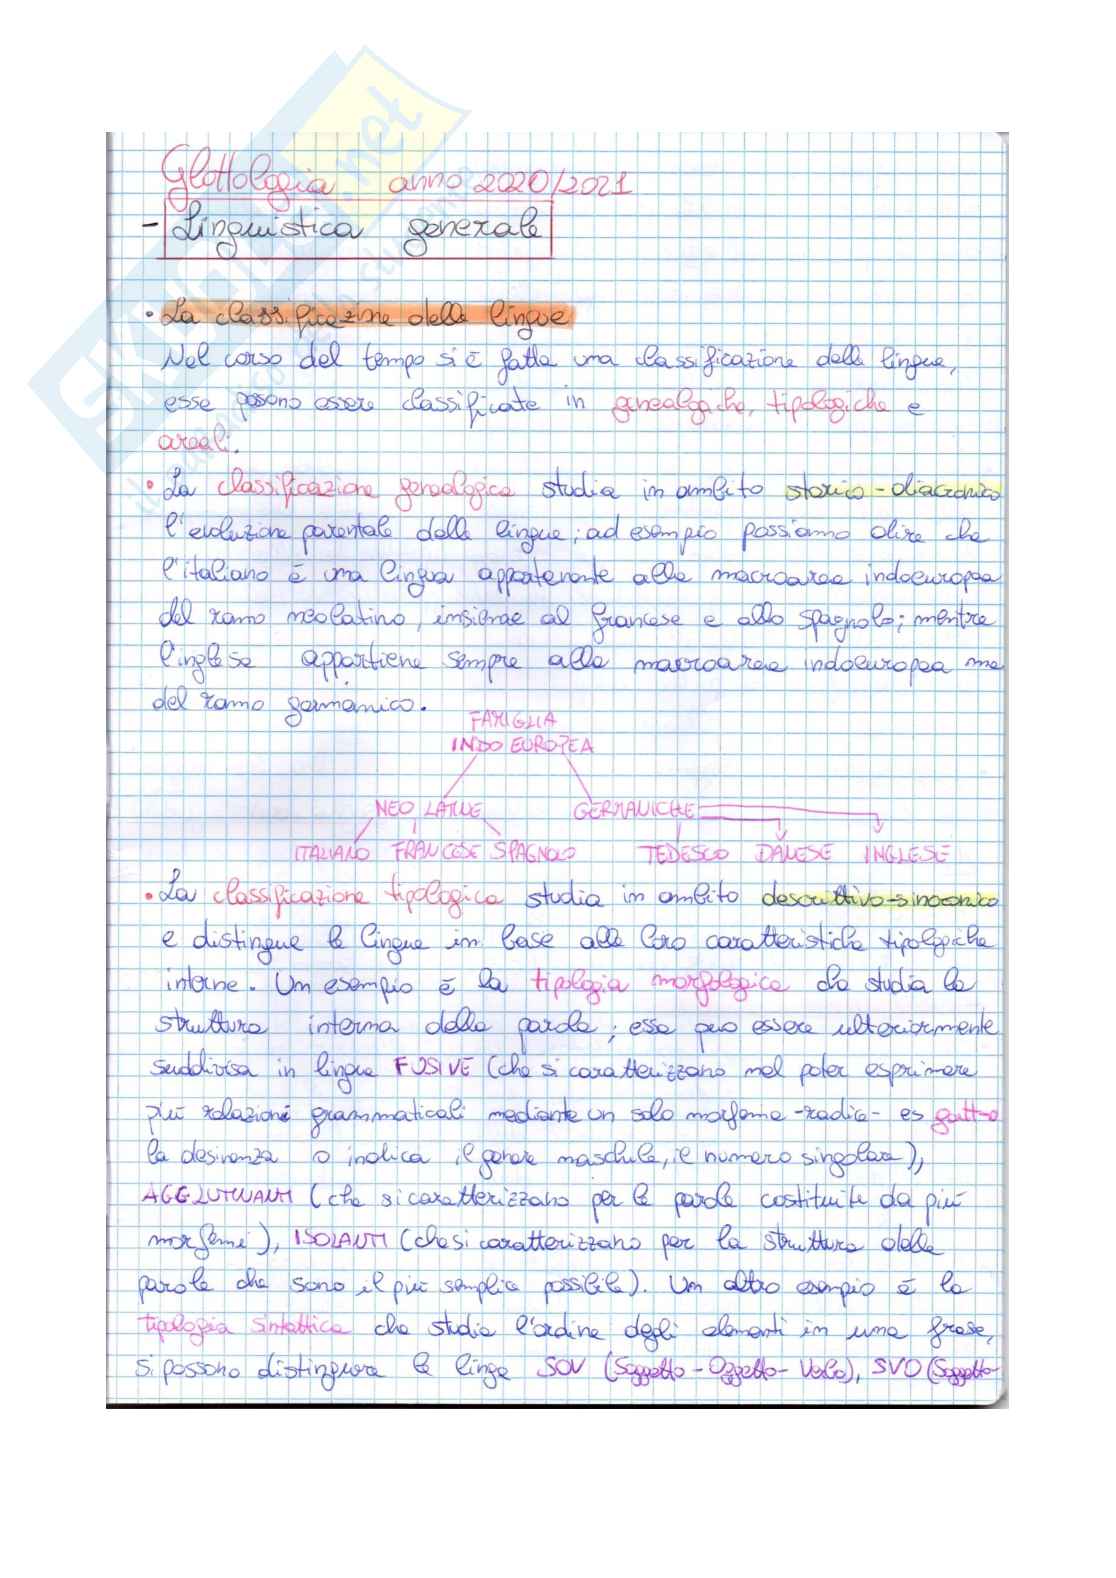 Glottologia anno 2020/2021
- Linguistica generale
• La classificazione delle lingue
Nel corso del tempo si è fatta una classificazione delle lingue,
esse possono essere classificate in genealogiche, tipologiche e
areali.
• La classificazione genealogica studia in ambito storico-diacronico
l'evoluzione parentale delle lingue; ad esempio possiamo dire che
l'italiano è una lingua appartenente alla macroarea indoeuropea
del ramo neolatino, insieme al francese e allo spagnolo; mentre
l'inglese appartiene sempre alla macroarea indoeuropea ma
del ramo germanico.
FAMIGLIA
INDO EUROPEA
NEO LATINE GERMANICHE
ITALIANO FRANCESE SPAGNOLO TEDESCO DANESE INGLESE
• La classificazione tipologica studia in ambito descrittivo-sincronico
e distingue le lingue in base alle loro caratteristiche tipologiche
interne. Un esempio è la tipologia morfologica che studia la
struttura interna delle parole; essa può essere ulteriormente
suddivisa in lingue FUSIVE (che si caratterizzano nel poter esprimere
più relazioni grammaticali mediante un solo morfema -radice- es gatt-o
la desinenza o indica il genere maschile, il numero singolare),
AGGLUTINANTI (che si caratterizzano per le parole costituite da più
morfemi), ISOLANTI (che si caratterizzano per la struttura delle
parole che sono il più semplice possibile). Un altro esempio è la
tipologia sintattica che studia l'ordine degli elementi in una frase,
si possono distinguere le linge SOV (Soggetto-Oggetto-Verbo), SVO (Soggetto-